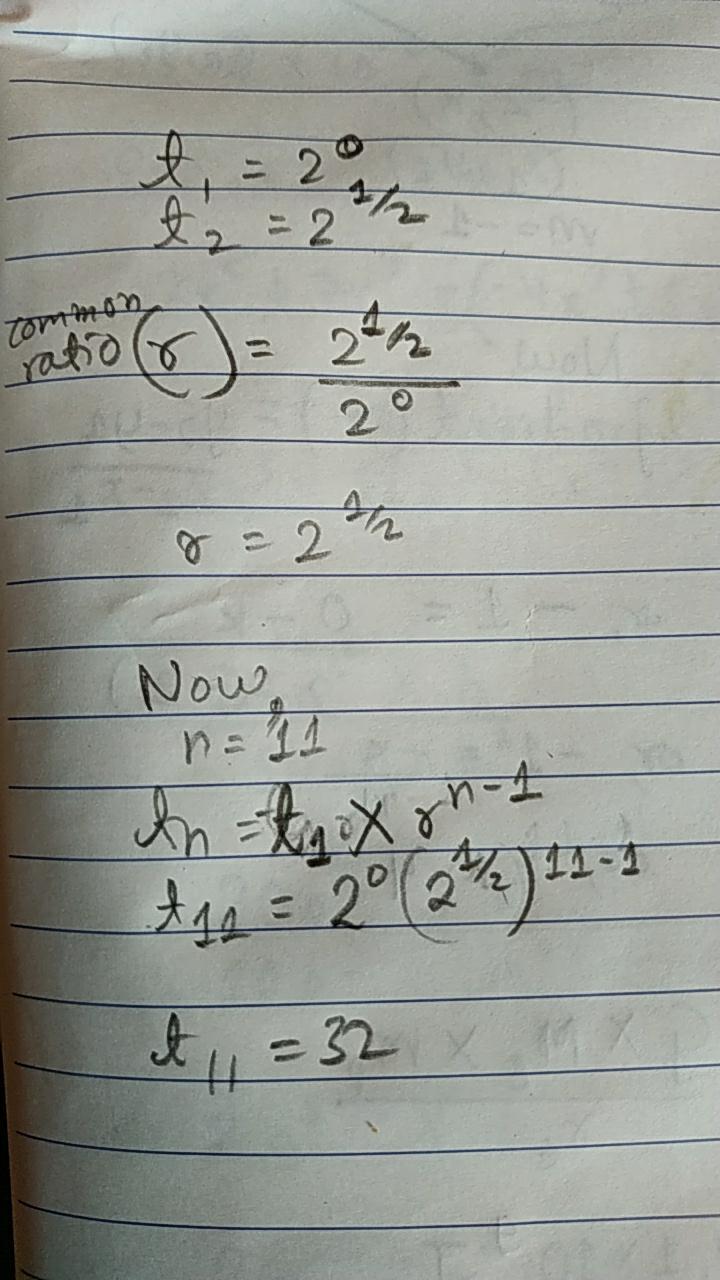 t₁ = 2⁰
t₂ = 2^1/2
common
ratio (r) = 2^1/2 / 2⁰
r = 2^1/2
Now,
n = 11
tn = t₁ × r^n-1
t₁₁ = 2⁰ (2^1/2)^11-1
t₁₁ = 32